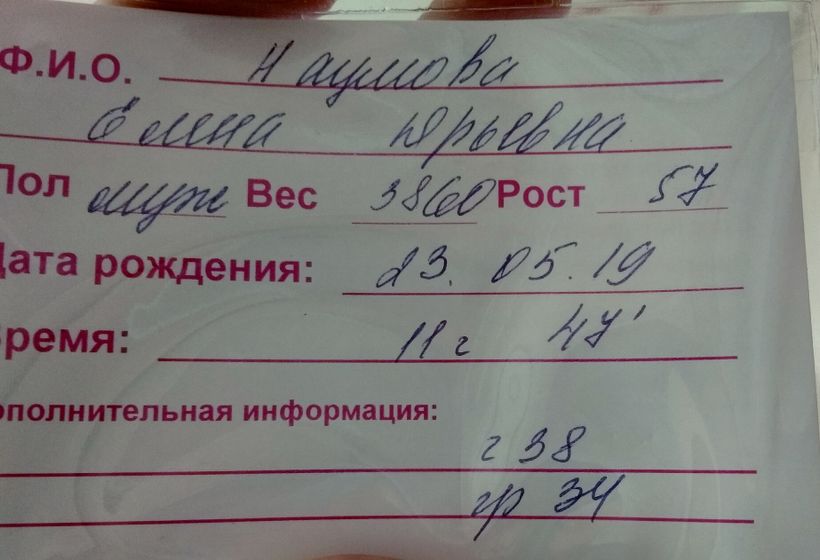 Ф.И.О. Наумова
Елена Юрьевна
Пол муж Вес 3860 Рост 57
Дата рождения: 23.05.19
Время: 11 г 47'
ополнительная информация:
г 38
гр 34